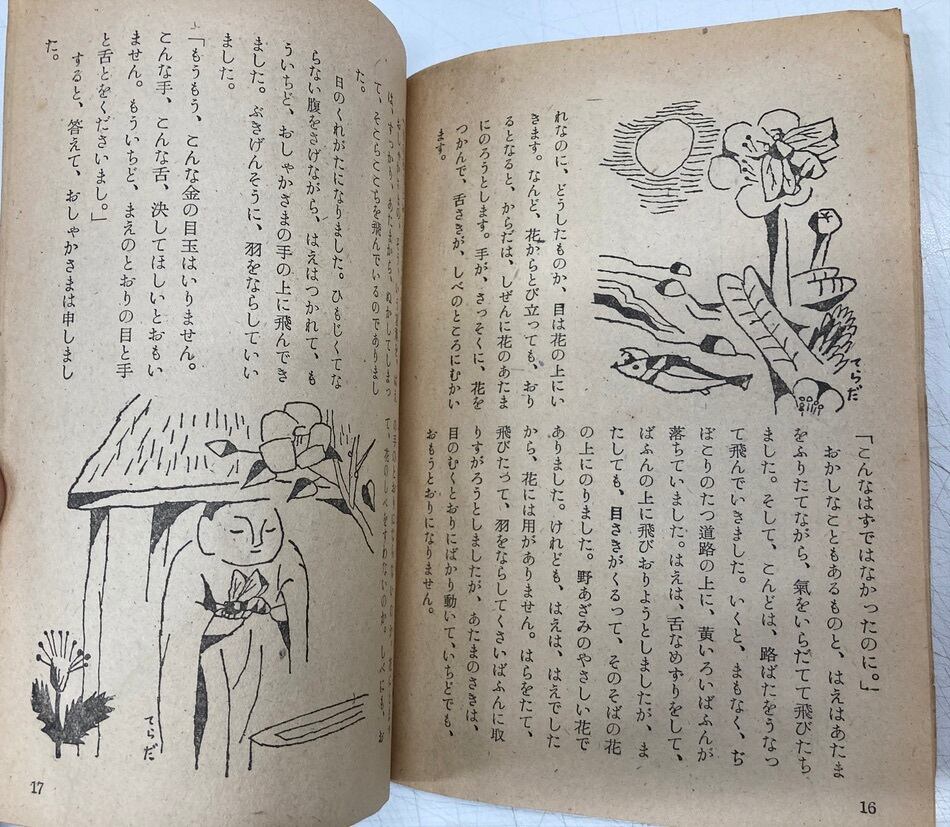 れなのに、どうしたものか、目は花の上にい
きます。なんど、花からとび立っても、おり
るとなると、からだは、しぜんに花のあたま
にのろうとします。手が、さっそくに、花を
つかんで、舌さきが、しべのところにむかい
ます。
てらだ
「こんなはずではなかったのに。」
おかしなこともあるものと、はえはあたま
をふりたてながら、氣をいらだてて飛びたち
ました。そして、こんどは、路ばたをうなっ
て飛んでいきました。いくと、まもなく、ぢ
ぼこりのたつ道路の上に、黄いろいばふんが
落ちていました。はえは、舌なめずりをして、
ばふんの上に飛びおりようとしましたが、ま
たしても、目さきがくるって、そのそばの花
の上にのりました。野あざみのやさしい花で
ありました。けれども、はえは、はえでした
から、花には用がありません。はらをたて、
飛びたって、羽をならしてくさいばふんに取
りすがろうとしましたが、あたまのさきは、
目のむくとおりにばかり動いて、いちどでも、
おもうとおりになりません。
16
は、すっかり、あたまから、ぬかしてしまっ
て、そこらここちを飛んでいるのでありまし
た。
日のくれがたになりました。ひもじくてな
らない腹をさげながら、はえはつかれて、も
ういちど、おしゃかさまの手の上に飛んでき
ました。ぶきげんそうに、羽をならしてい
ました。
「もうもう、こんな金の目玉はいりません。
こんな手、こんな舌、決してほしいとおもい
ません。もういちど、まえのとおりの目と手
と舌とをくださいまし。」
すると、答えて、おしゃかさまは申しまし
た。
て、花のしべをすわないのか。しべにも、お
てらだ
17